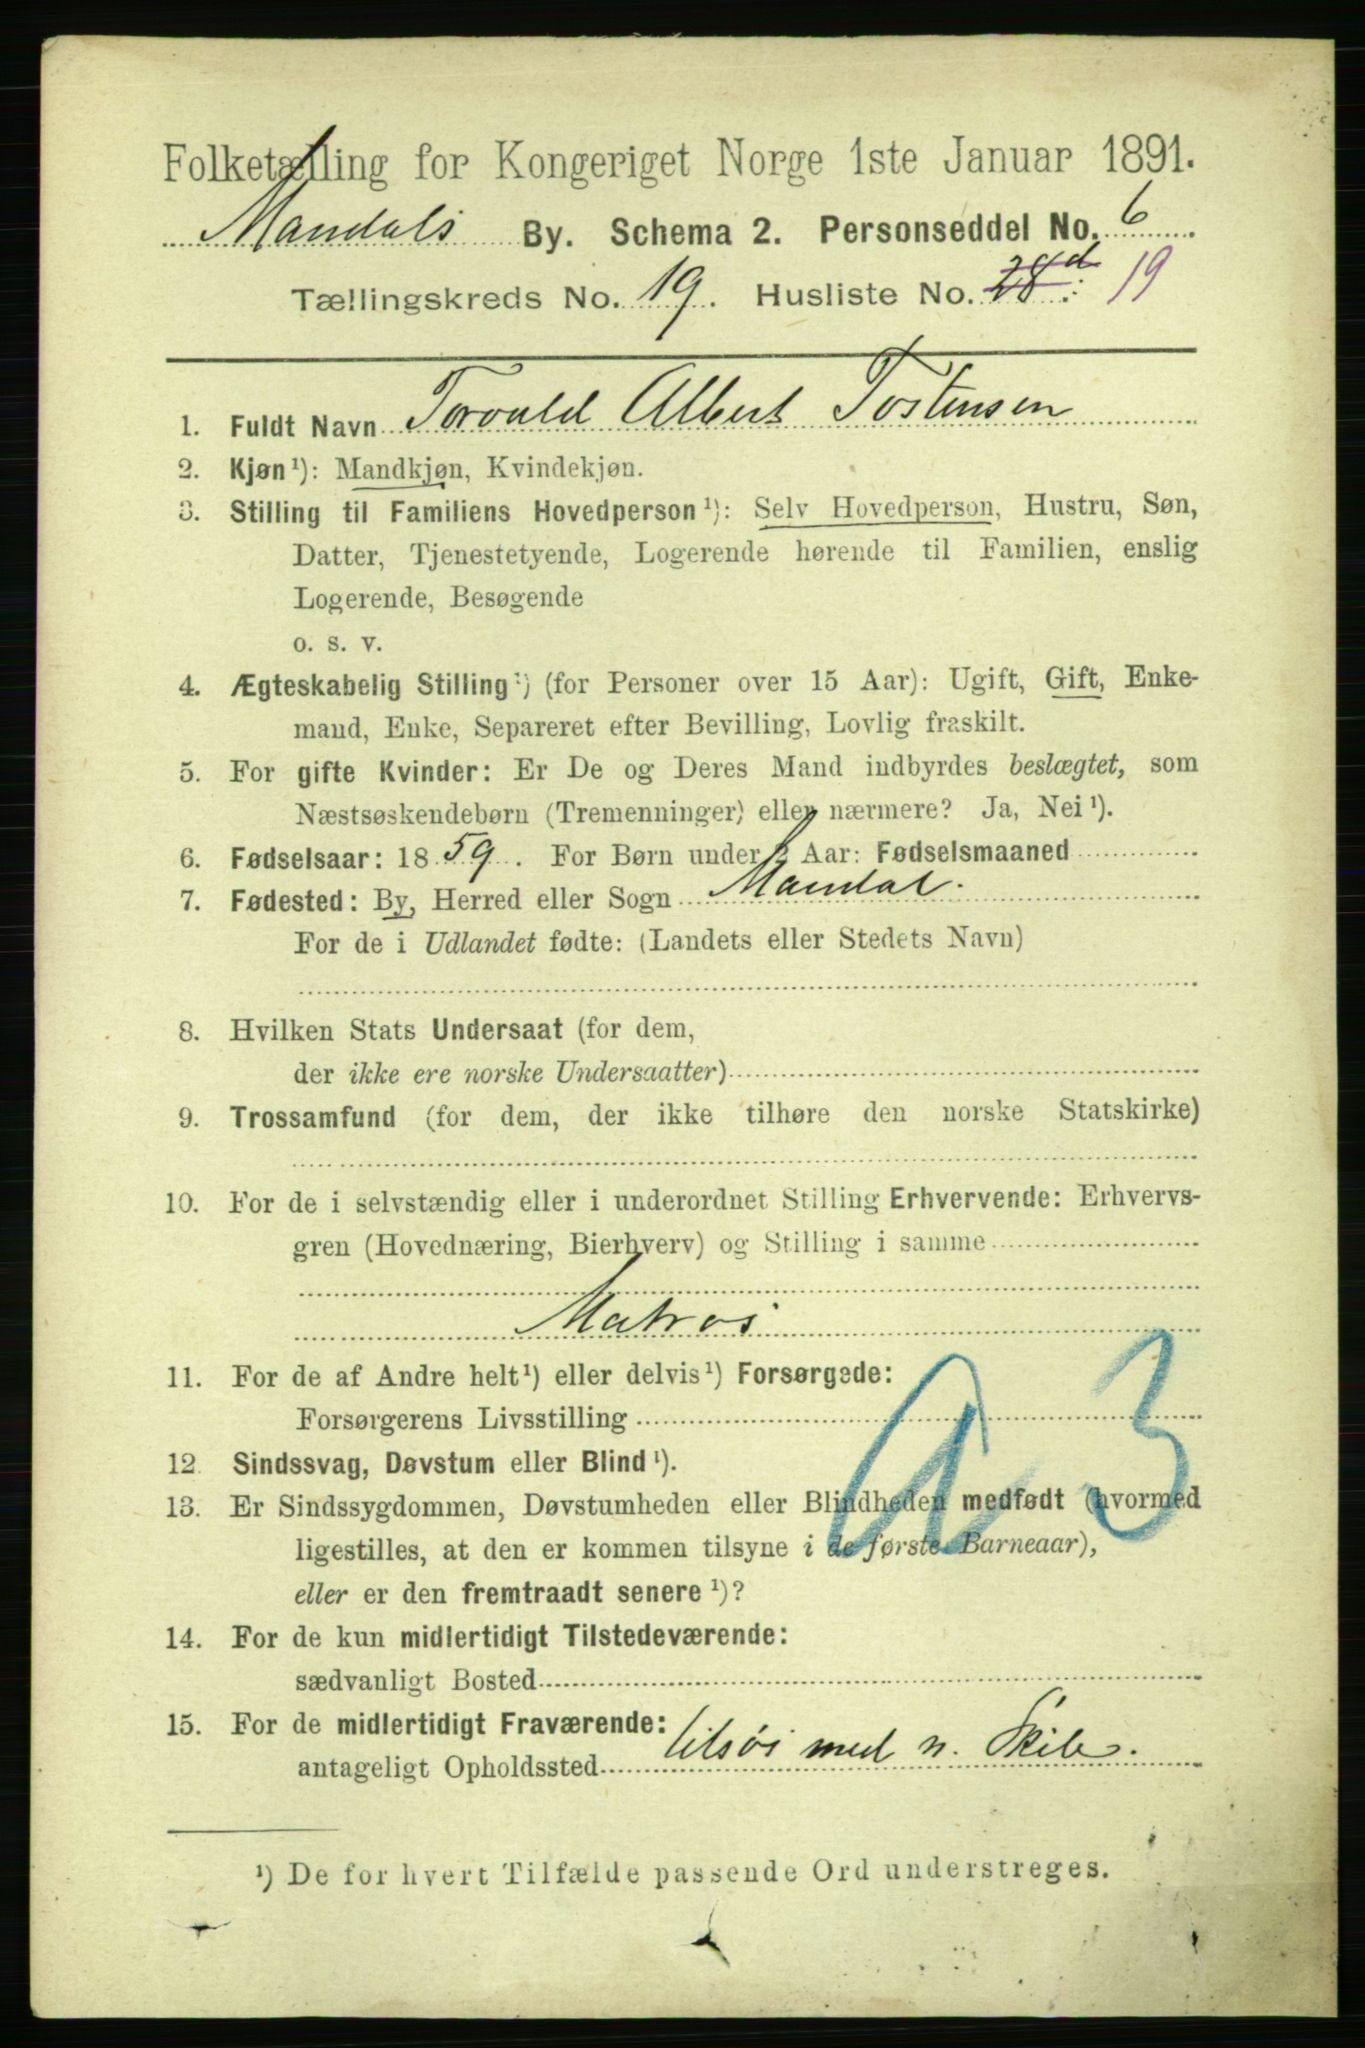 Folketælling for Kongeriget Norge 1ste Januar 1891.
Mandals By. Schema 2. Personseddel No. 6
Tællingskreds No. 19. Husliste No. 28d 19
1. Fuldt Navn Torvald Albert Tostensen
2. Kjøn¹): Mandkjøn, Kvindekjøn.
3. Stilling til Familiens Hovedperson¹): Selv Hovedperson, Hustru, Søn,
Datter, Tjenestetyende, Logerende hørende til Familien, enslig
Logerende, Besøgende
o. s. v.
4. Ægteskabelig Stilling¹) (for Personer over 15 Aar): Ugift, Gift, Enke-
mand, Enke, Separeret efter Bevilling, Lovlig fraskilt.
5. For gifte Kvinder: Er De og Deres Mand indbyrdes beslægtet, som
Næstsøskendebørn (Tremenninger) eller nærmere? Ja, Nei¹).
6. Fødselsaar: 1859. For Børn under 2 Aar: Fødselsmaaned
7. Fødested: By, Herred eller Sogn Mandal.
For de i Udlandet fødte: (Landets eller Stedets Navn)
8. Hvilken Stats Undersaat (for dem,
der ikke ere norske Undersaatter)
9. Trossamfund (for dem, der ikke tilhøre den norske Statskirke)
10. For de i selvstændig eller i underordnet Stilling Erhvervende: Erhvervs-
gren (Hovednæring, Bierhverv) og Stilling i samme
Matros
11. For de af Andre helt¹) eller delvis¹) Forsørgede:
Forsørgerens Livsstilling
a 3
12 Sindssvag, Døvstum eller Blind¹).
13. Er Sindssygdommen, Døvstumheden eller Blindheden medfødt (hvormed
ligestilles, at den er kommen tilsyne i de første Barneaar),
eller er den fremtraadt senere¹)?
14. For de kun midlertidigt Tilstedeværende:
sædvanligt Bosted
15. For de midlertidigt Fraværende:
antageligt Opholdssted tilsøs med n. Skib.
¹) De for hvert Tilfælde passende Ord understreges.